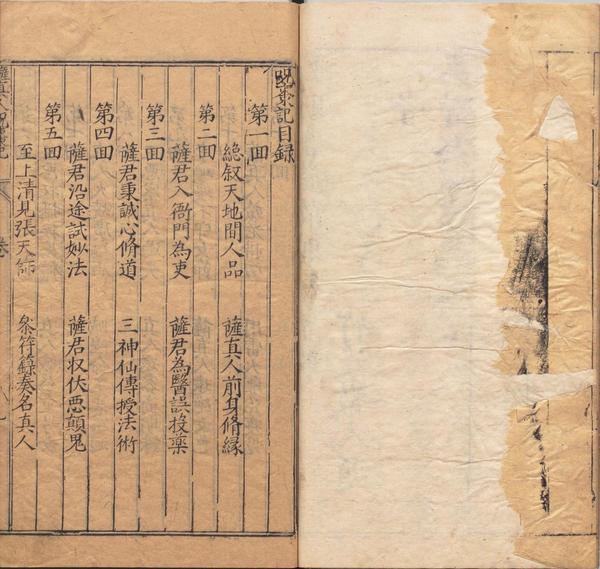 呪棗記目録
第一囬
總叙天地間人品 薩真人前身脩緣
第二囬
薩君入衙門為吏 薩君為醫誤投藥
第三囬
薩君秉誠心脩道 三神仙傳授法術
第四囬
薩君沿途試妙法 薩君収伏悪顛鬼
第五囬
至上清見張天師 叅符籙奏名真人
薩真人呪棗記 卷